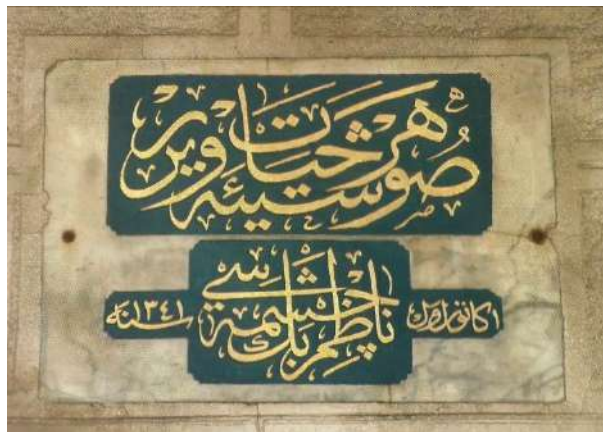 صو هر شيئه حيات ويرر
ناظم بك چشمه سي
١ كانون اول سنه ١٣٤١